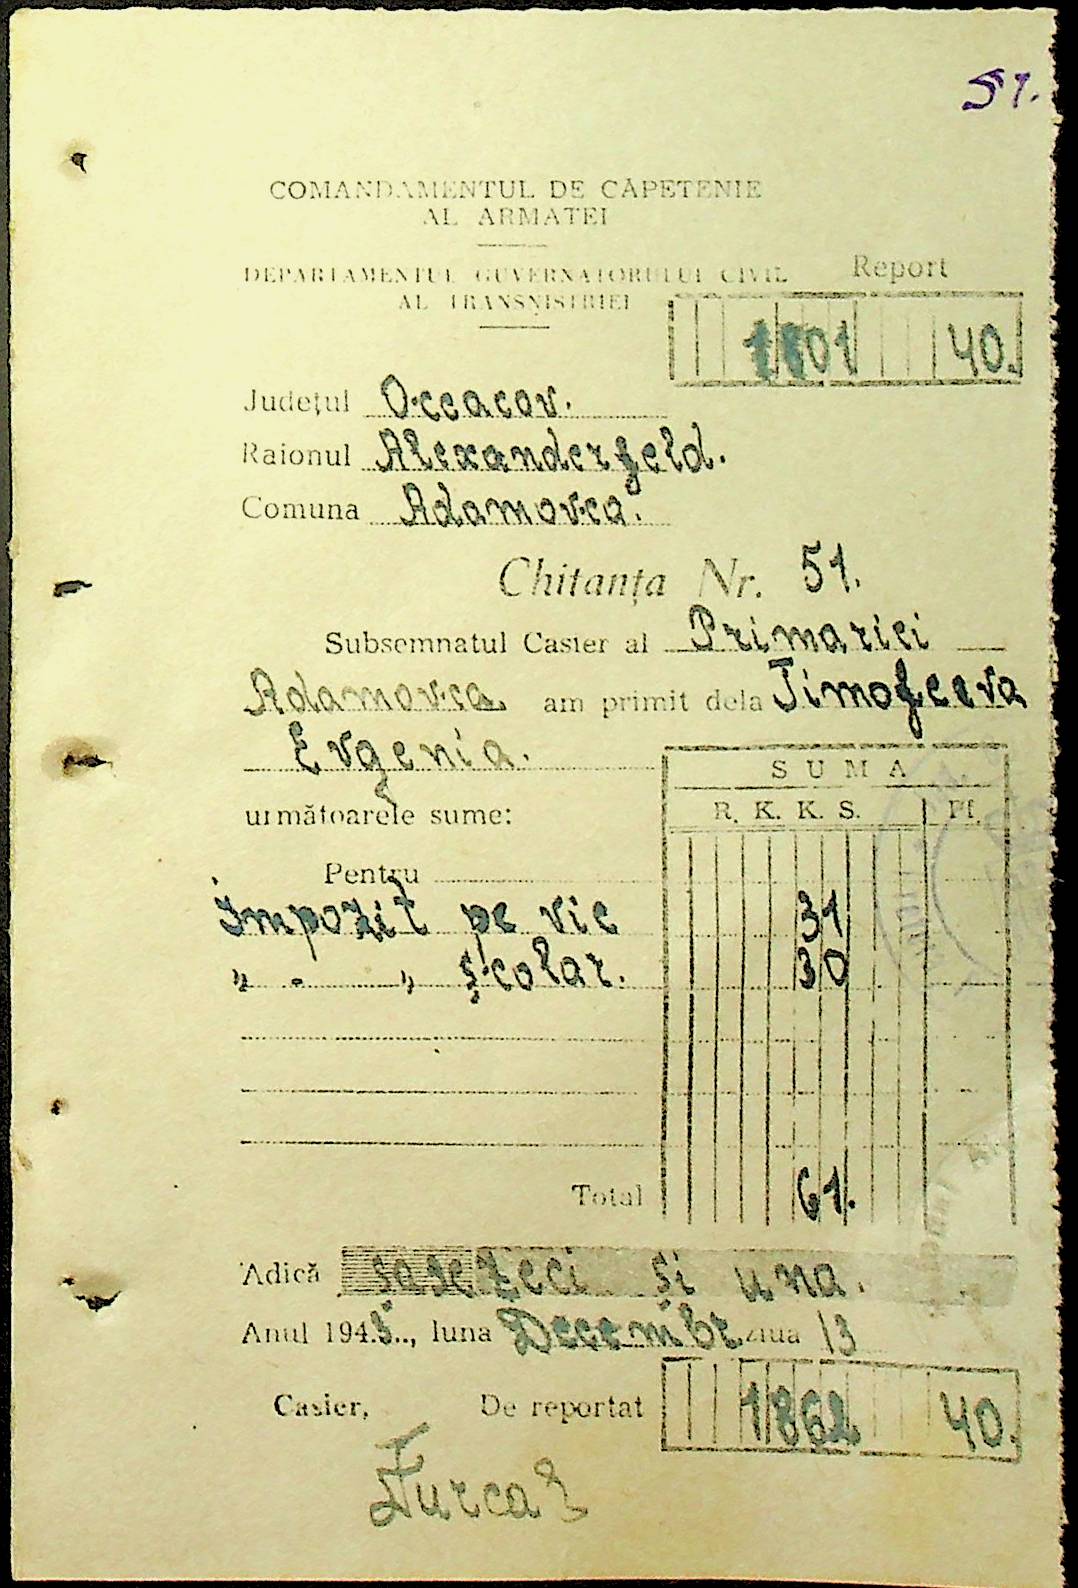 51.
COMANDAMENTUL DE CĂPETENIE
AL ARMATEI
DEPARTAMENTUL GUVERNATORULUI CIVIL
AL TRANSNISTRIEI
Report
1801 40.
Județul Oceacov.
Raionul Alexanderfeld.
Comuna Adamovca.
Chitanța Nr. 51.
Subsemnatul Casier al Primariei
Adamovca am primit dela Timofeeva
Evgenia.
următoarele sume:
SUMA
R. K. K. S. Pf.
Pentru
Impozit pe vie 31
„ - „ școlar. 30
Total 61.
Adică șasezeci și una.
Anul 1943.., luna Decembr ziua 13
Casier, De reportat 1862 40.